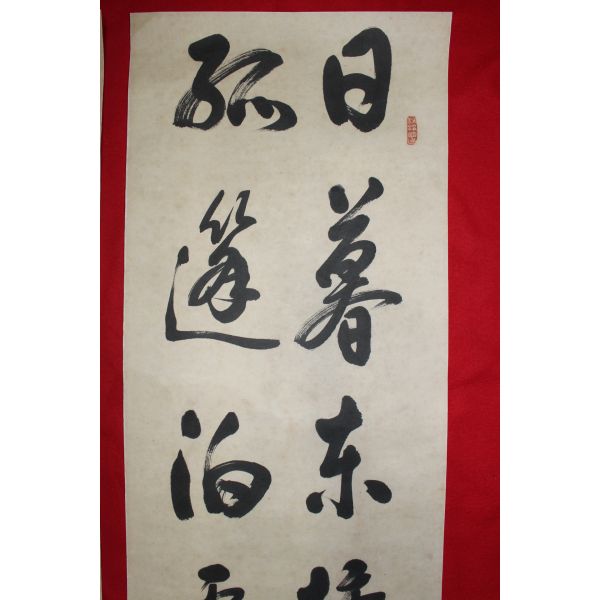 日暮东
孤篷泊